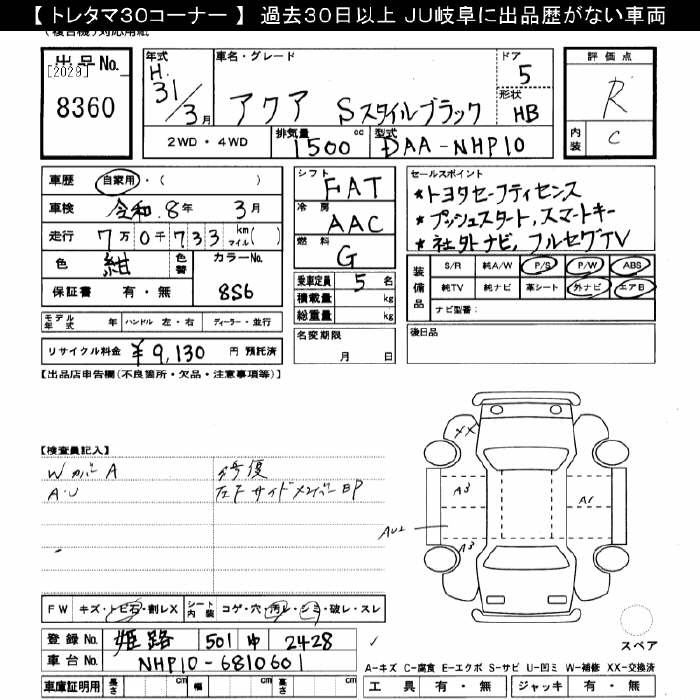 【 トレタマ30コーナー 】 過去30日以上 JU岐阜に出品歴がない車両
(複合機)対応用紙
出品No. [2029] 8360
年式 H. 31/3月
車名・グレード アクア Sスタイルブラック
ドア 5
形状 HB
2WD・4WD
排気量 1500 cc
型式 DAA-NHP10
評価点 R
内装 C
車歴 自家用・( )
車検 令和 8年 3月
走行 7万0千733 km マイル( )
色 紺 色替 カラーNo. 8S6
保証書 有・無
モデル年式 年 ハンドル 左・右 ディーラー・並行
リサイクル料金 ¥9,130 円 預託済
シフト FAT
冷房 AAC
燃料 G
乗車定員 5 名
積載量 kg
総重量 kg
名変期限 月 日
セールスポイント
★トヨタセーフティセンス
★プッシュスタート,スマートキー
★社外ナビ,フルセグTV
装備品 S/R 純A/W P/S P/W ABS
純TV 純ナビ 革シート 外ナビ エアB
ナビ型番:
後日品
【出品店申告欄(不良箇所・欠品・注意事項等)】
【検査員記入】
Wカバー A
A・U
修復
左F サイドメンバー BP
XX
A3
A1
AU2
A3
FW キズ・トビ石・割レX シート内装 コゲ・穴・汚レ・シミ・破レ・スレ
登録No. 姫路 501 ゆ 2428
車台No. NHP10-6810601
車庫証明用 長さ cm 幅 cm 高さ cm
スペア
A−キズ C−腐食 E−エクボ S−サビ U−凹ミ W−補修 XX−交換済
工具 有・無 ジャッキ 有・無